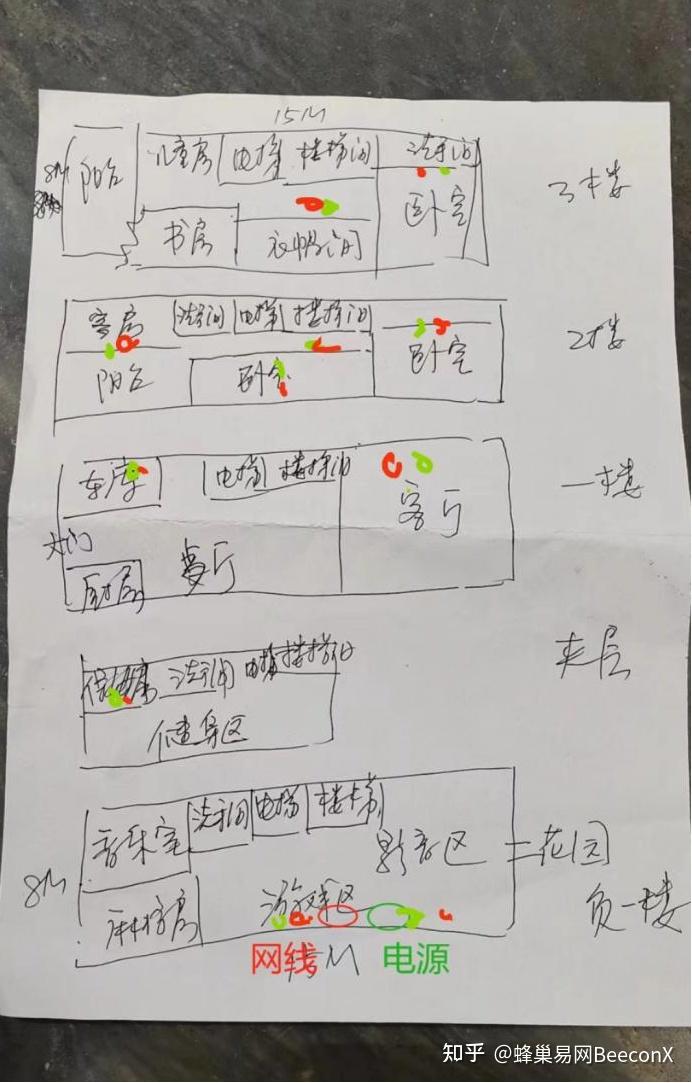 15M
8M 阳台 儿童房 电梯 楼梯间 洗手间
书房 衣帽间 卧室 3楼
客房 洗手间 电梯 楼梯间
阳台 卧室 卧室 2楼
车库 电梯 楼梯间 客厅 一楼
大门
厨房 餐厅
保姆房 洗手间 电梯 楼梯间 夹层
健身区
音乐室 洗手间 电梯 楼梯 影音区 花园
8M 游戏区 负一楼
网线 M 电源
知乎 @蜂巢易网BeeconX